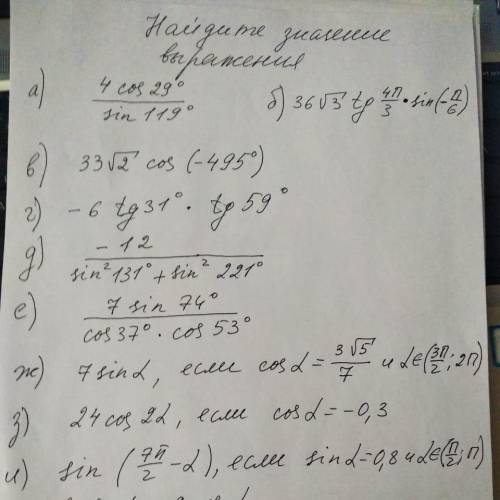 Найдите значение
выражения
а) 4 cos 29° / sin 119°
б) 36√3 tg 4π/3 · sin(-π/6)
в) 33√2 cos (-495°)
г) - 6 tg 31° · tg 59°
д) - 12 / sin² 131° + sin² 221°
е) 7 sin 74° / cos 37° · cos 53°
ж) 7 sin α, если cos α = 3√5/7 и α ∈ (3π/2; 2π)
з) 24 cos 2α, если cos α = -0,3
и) sin (7π/2 - α), если sin α = 0,8 и α ∈ (π/2; π)